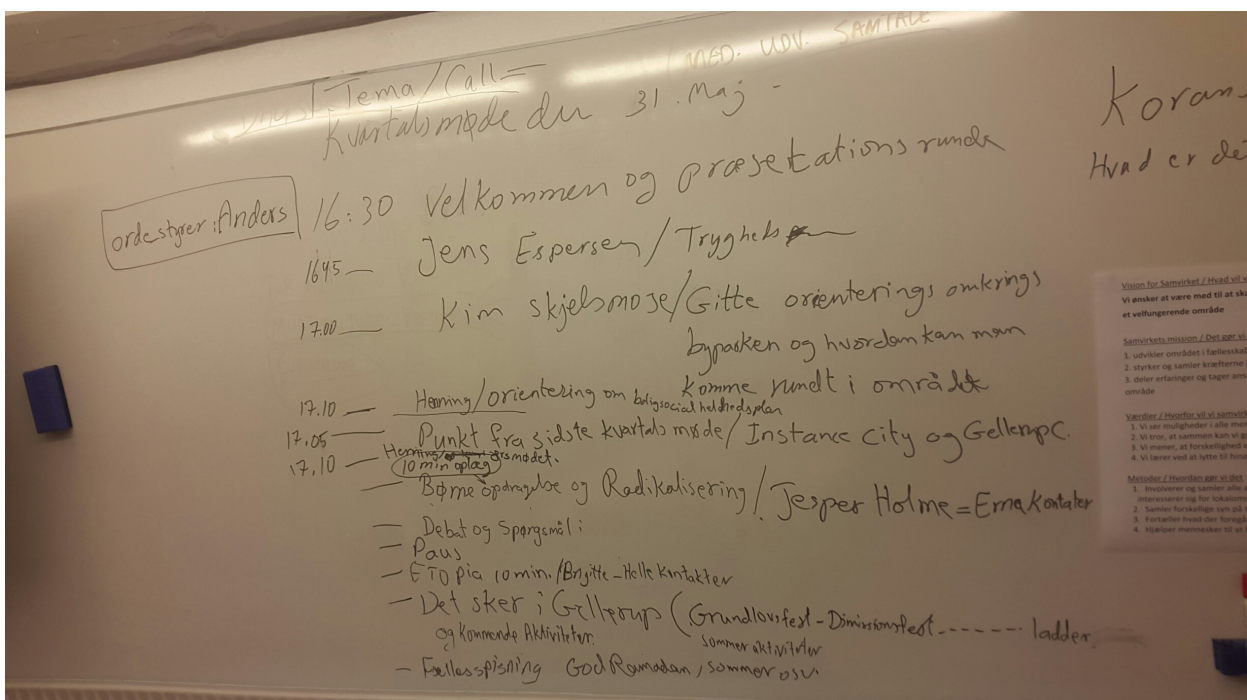 MED. UDV. SAMTALE
Tema/Call
Kvartalsmøde den 31. Maj -
ordestyrer: Anders
16:30 Velkommen og præsetations runde
1645 — Jens Espersen / Trygheds
17.00 — Kim skjelsmose/Gitte orienterings omkrings
byparken og hvordan kan man
komme rundt i området
17.10 — Henning/orientering om boligsocial helhedsplan
17.05 — Punkt fra sidste kvartals møde / Instance City og Gellerup C.
17.10 — Henning årsmødet.
10 min oplæg
— Børne opdragelse og Radikalisering / Jesper Holme = Erna Kontakter
— Debat og Spørgsmål i
— Paus
— ETOpia 10 min. / Brigitte - Helle kontakter
— Det sker i Gellerup (Grundlovsfest - Dimissionsfest ------ ladder
og Kommende Aktiviteter sommer aktiviteter
— Fællesspisning God Ramadan, sommer osv.
Koran
Hvad er de
Vision for Samvirket / Hvad vil v
Vi ønsker at være med til at ska
et velfungerende område
Samvirkets mission / Det gør vi
1. udvikler området i fællesskab
2. styrker og samler kræfterne
3. deler erfaringer og tager ans
område
Værdier / Hvorfor vil vi samvirk
1. Vi ser muligheder i alle men
2. Vi tror, at sammen kan vi g
3. Vi mener, at forskellighed
4. Vi lærer ved at lytte til hina
Metoder / Hvordan gør vi det
1. Involverer og samler alle
interesserer sig for lokalom
2. Samler forskellige syn på
3. Fortæller hvad der foregå
4. Hjælper mennesker til at